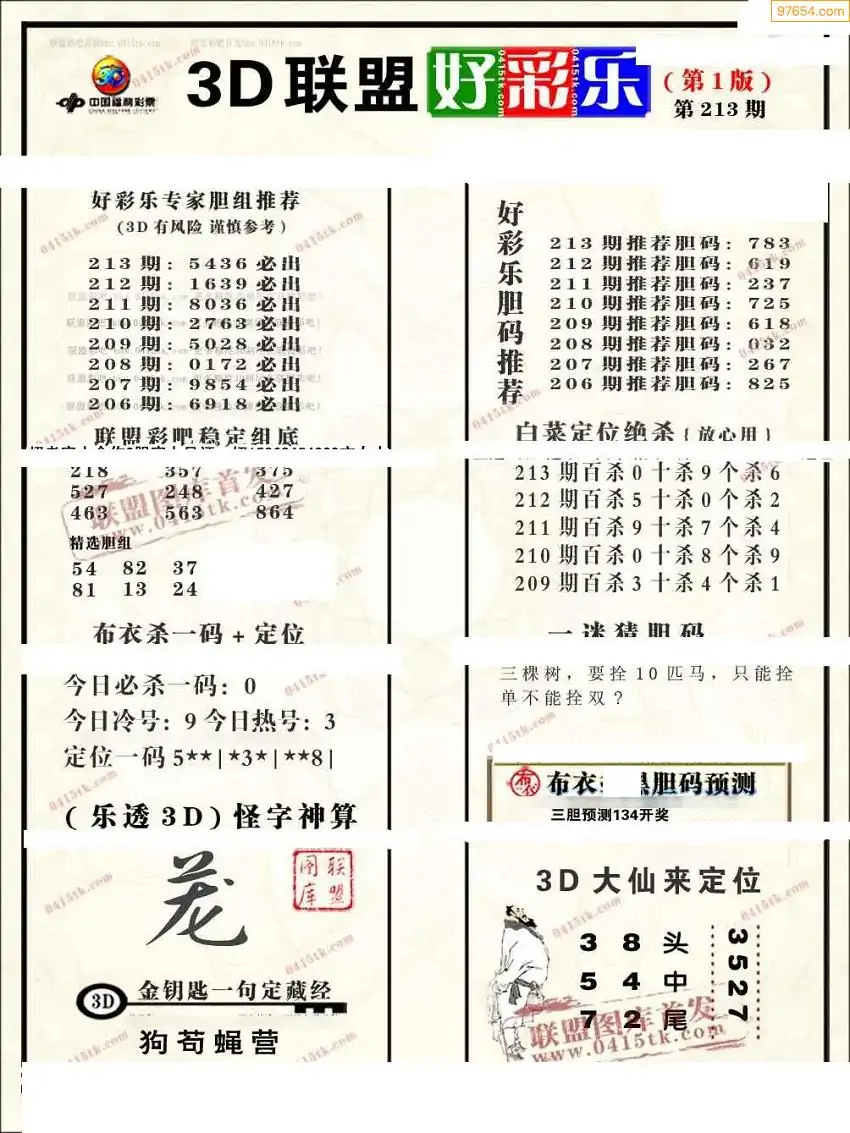 97654.com
中国福利彩票
CHINA WELFARE LOTTERY
3D联盟好彩乐
(第1版)
第213期
好彩乐专家胆组推荐
(3D有风险 谨慎参考)
213期: 5436必出
212期: 1639必出
211期: 8036必出
210期: 2763必出
209期: 5028必出
208期: 0172必出
207期: 9854必出
206期: 6918必出
联盟彩吧稳定组底
218 357 375
527 248 427
463 563 864
精选胆组
54 82 37
81 13 24
布衣杀一码+定位
今日必杀一码: 0
今日冷号: 9 今日热号: 3
定位一码5**|*3*|**8|
(乐透3D)怪字神算
联盟图库
3D
金钥匙一句定藏经
狗苟蝇营
好彩乐胆码推荐
213期推荐胆码: 783
212期推荐胆码: 619
211期推荐胆码: 237
210期推荐胆码: 725
209期推荐胆码: 618
208期推荐胆码: 032
207期推荐胆码: 267
206期推荐胆码: 825
白菜定位绝杀{放心用}
213期百杀0十杀9个杀6
212期百杀5十杀0个杀2
211期百杀9十杀7个杀4
210期百杀0十杀8个杀9
209期百杀3十杀4个杀1
一迷猜胆码
三棵树，要拴10匹马，只能拴
单不能拴双?
布衣
胆码预测
三胆预测134开奖
3D大仙来定位
3 8 头
5 4 中
7 2 尾
3527
联盟图库首发
www.0415tk.com
0415tk.com